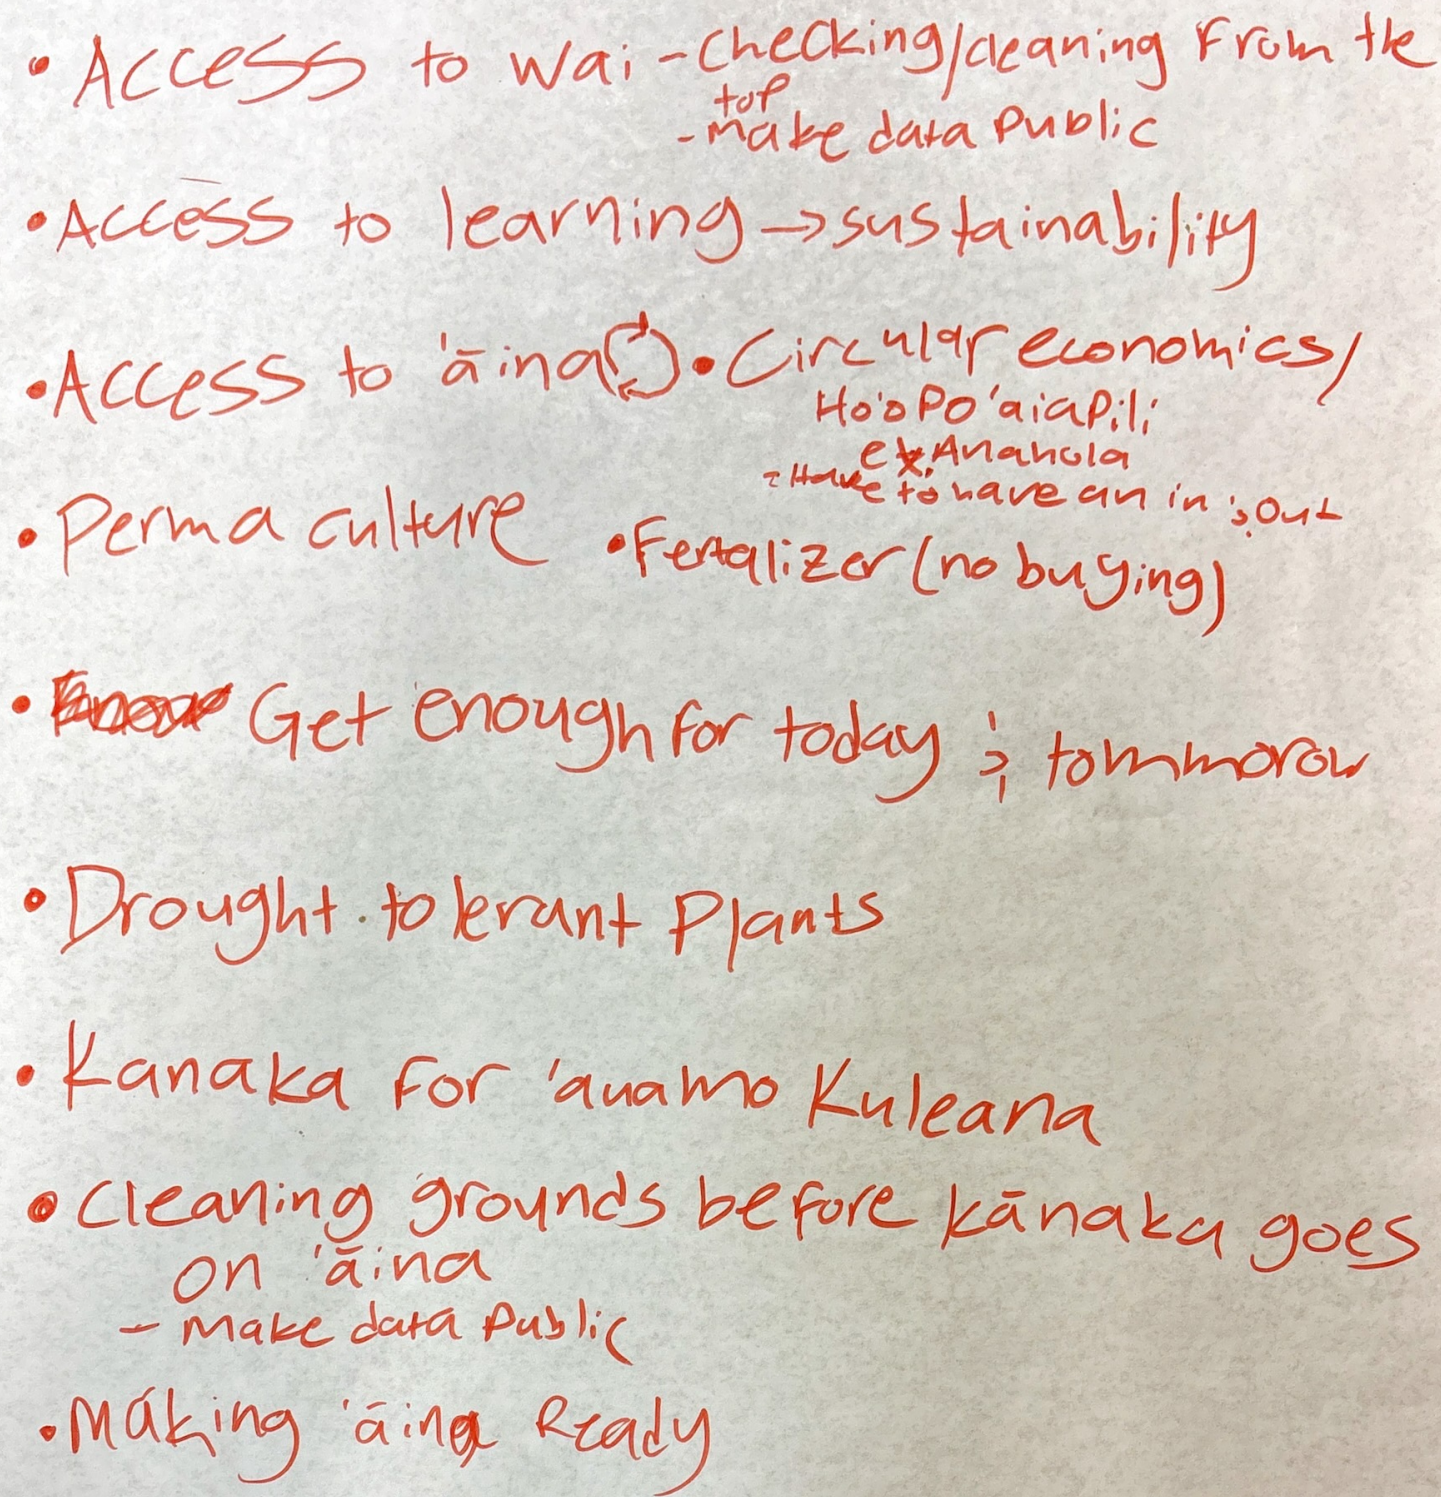 • Access to wai - checking/cleaning from the
top
- make data public
• Access to learning → sustainability
• Access to 'āina • Circular economics/
Ho'opo'aiapili
ex. Anahola
- Have to have an in & out
• Perma culture
• Fertalizer (no buying)
• Get enough for today & tommorow
• Drought tolerant plants
• Kanaka for 'auamo Kuleana
• Cleaning grounds before kānaka goes
on 'āina
- Make data public
• Making 'āina Ready